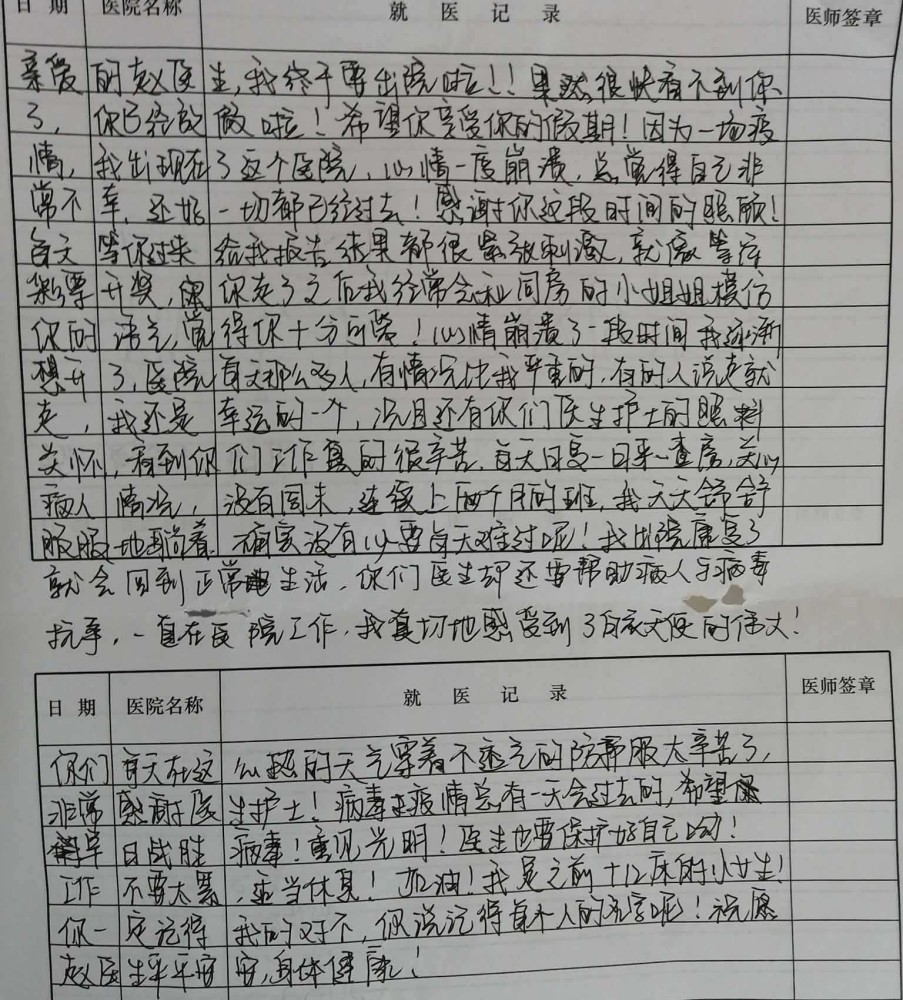 日 期 医院名称 就 医 记 录 医师签章
亲爱的赵医生，我终于要出院啦！！果然很快看不到你
了，你已经放假啦！希望你享受你的假期！因为一场疫
情，我出现在了这个医院，心情一度崩溃，总觉得自己非
常不幸，还好一切都已经过去！感谢你这段时间的照顾！
每天等你过来给我报告结果都很紧张刺激，就像等待
彩票开奖，你走了之后我经常会和同房的小姐姐模仿
你的语气，觉得你十分可爱！心情崩溃了一段时间我逐渐
想开了，医院每天那么多人，有情况比我严重的，有的人说走就
走，我还是幸运的一个，况且还有你们医生护士的照料
关怀，看到你们工作真的很辛苦，每天日复一日来查房，关心
病人情况，没有周末，连续上两个月的班，我天天舒舒
服服地躺着，确实没有必要每天难过呢！我出院康复了
就会回到正常生活，你们医生却还要帮助病人与病毒
抗争，一直在医院工作，我真切地感受到了白衣天使的伟大！
日 期 医院名称 就 医 记 录 医师签章
你们每天在这么热的天气穿着不透气的防护服太辛苦了，
非常感谢医生护士！病毒疫情总有一天会过去的，希望
早日战胜病毒！重见光明！医生也要保护好自己呦！
工作不要太累，适当休息！加油！我是之前+12床的小女生！
你一定记得我的对不，你说记得每个人的名字呢！祝愿
赵医生平平安安，身体健康！